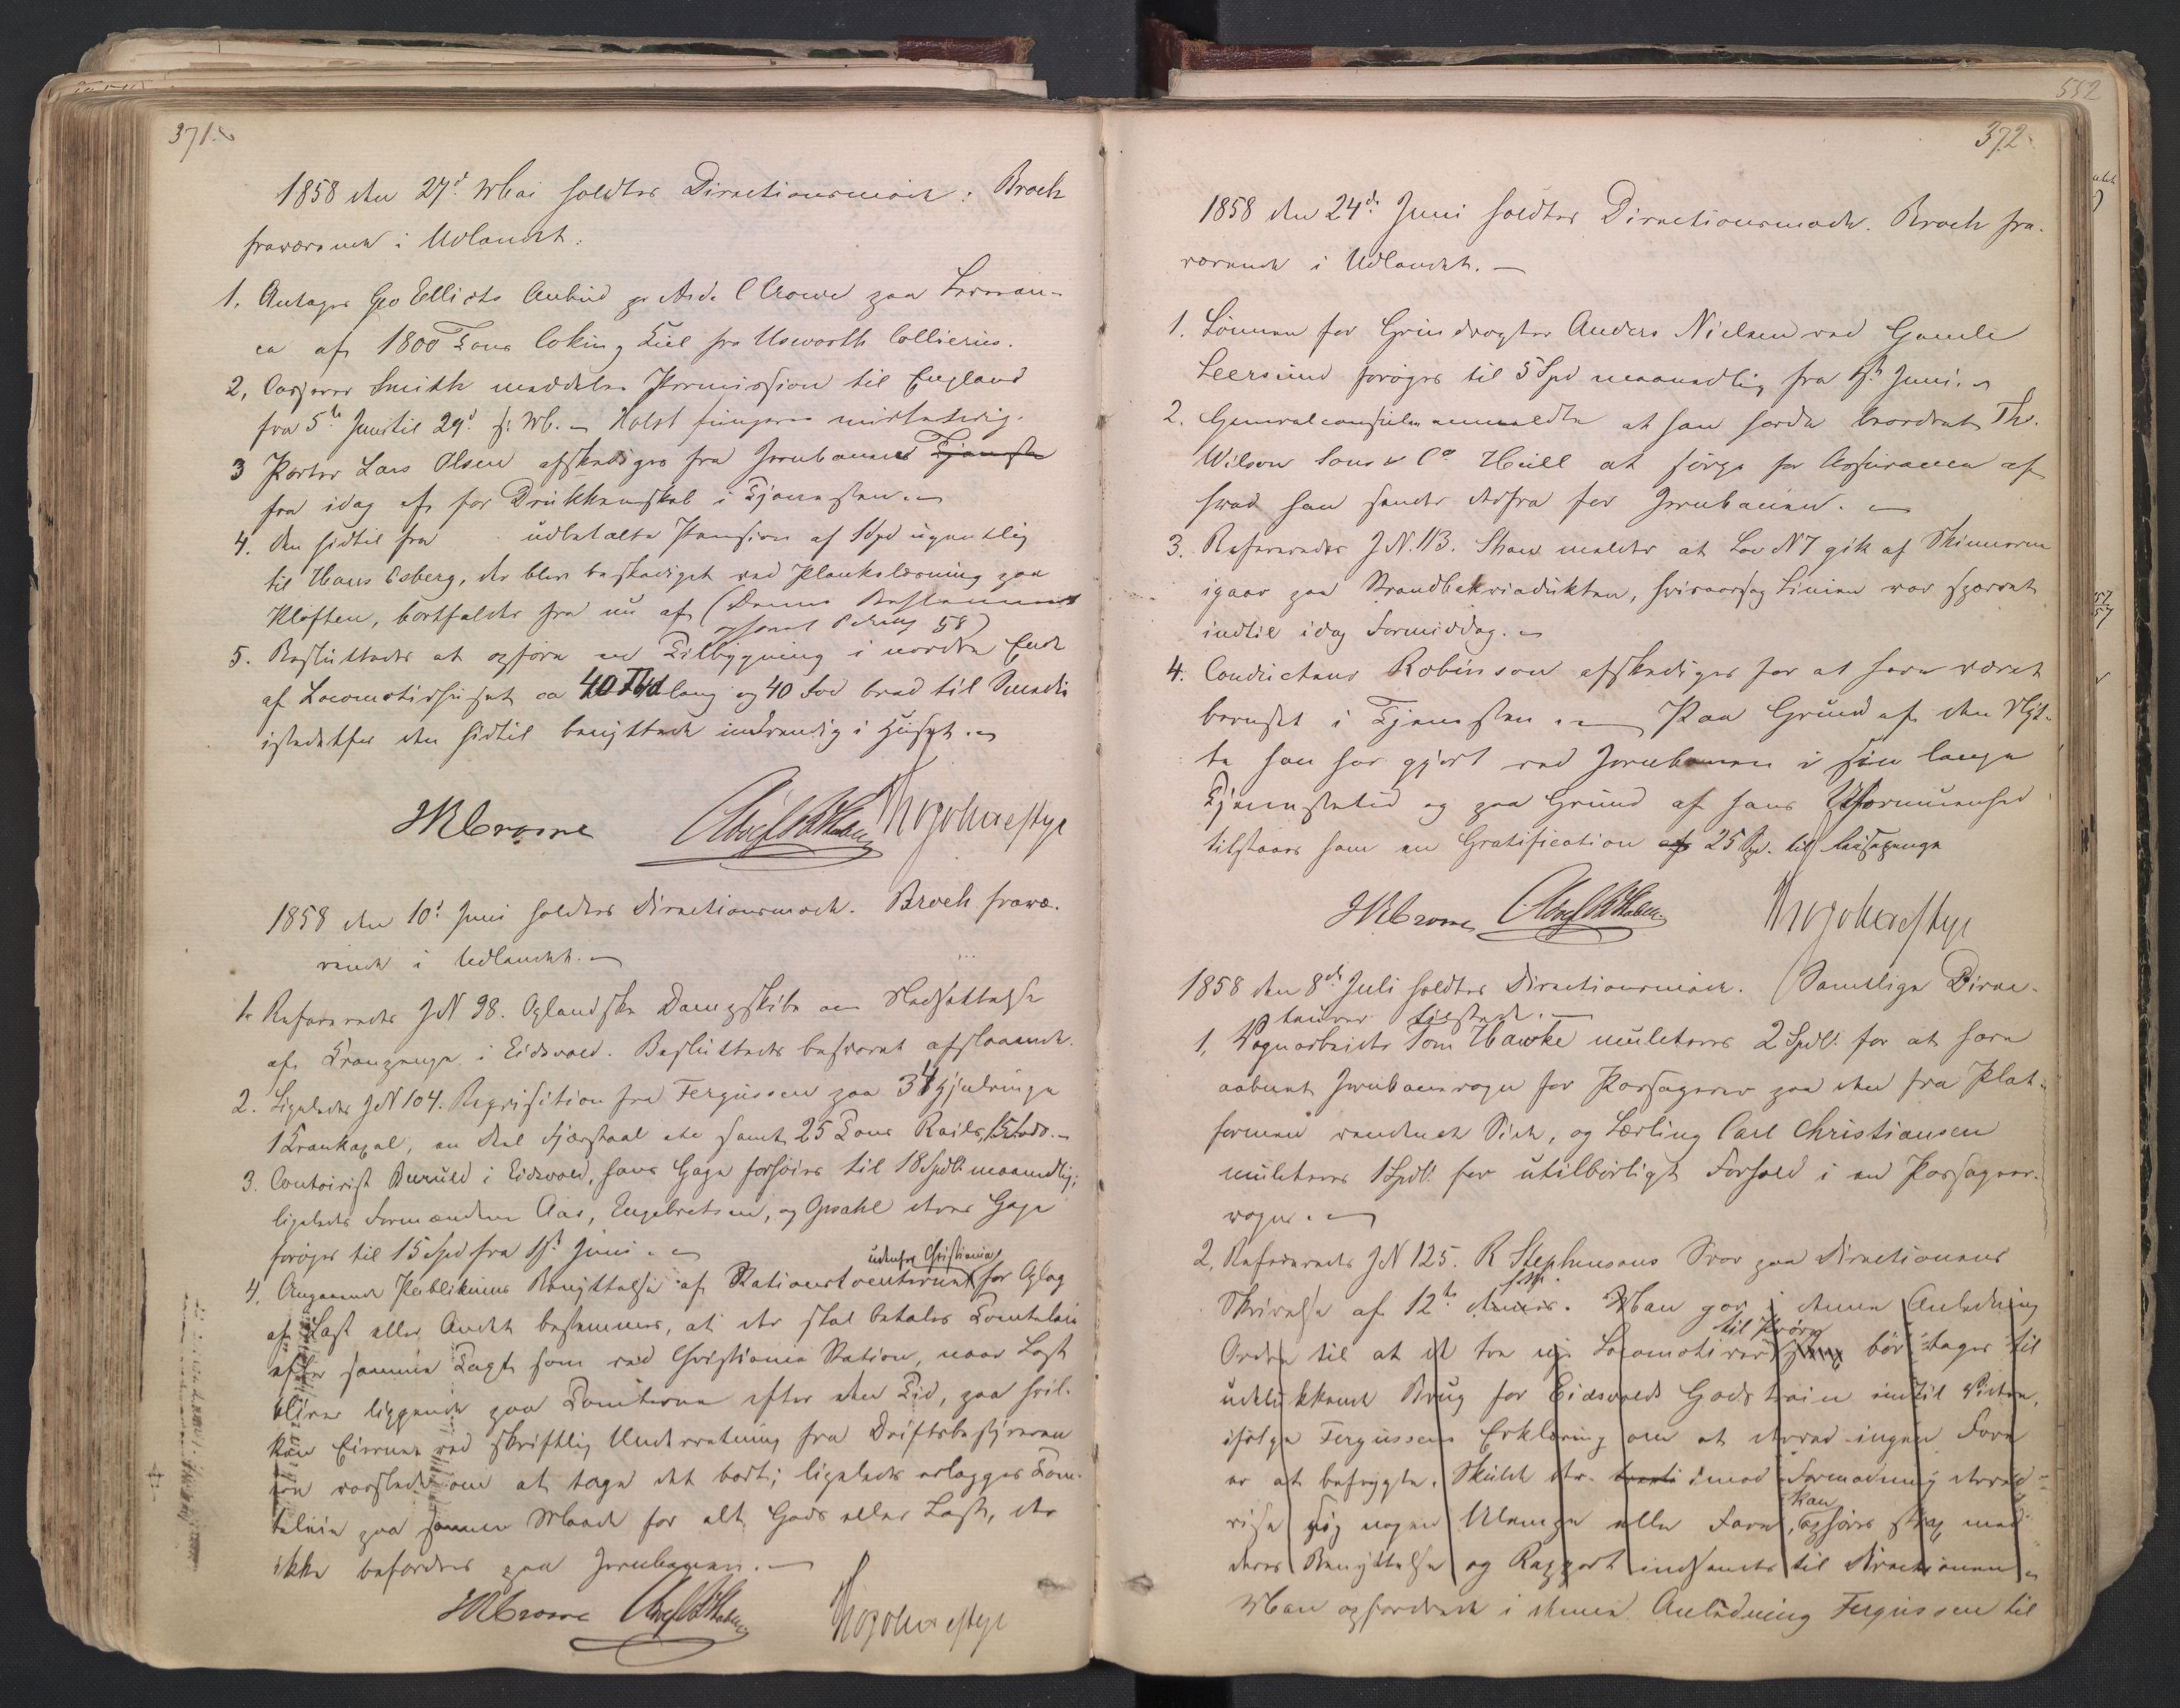 371.
1858 den 27d. Mai holdtes Directionsmöde: Broch
fraværende i Udlandet.
1. Antages Geo Elliots Anbud pr Andr. Crowe paa Leveran-
ce af 1800 Tons Coking Kul fra Usworth Collieries.
2. Casserer Smith meddeles Permission til England
fra 5te Juni til 29d. s: M. – Holst fungerer midlertidig.
3 Porter Lars Olsen afskediges fra Jernbanens Tjeneste
fra idag af for Drukkenskab i Tjenesten. –
4. Den hidtil fra udbetalte Pension af 1 Spd ugentlig
til Hans Esberg, der blev beskadiget ved Plankelæsning paa
Kløften, bortfalder fra nu af (Denne Bestemmelse
ophævet
58)
5. Besluttedes at opføre en Tilbygning i nordre Ende
af Locomotivhuset ca 40 Fod lang og 40 Fod bred til Smedie
istedetfor den hidtil benyttede indvendig i Huset. –
JRCrowe
1858 den 10d. Juni holdtes Directionsmöde. Broch fravæ-
rende i Udlandet. –
1. Refereredes JN 98. Oplandske Dampskibe om Nedsættelse
af Kranpenge i Eidsvold. Besluttedes besvaret afslaaende.
2. Ligeledes JN 104. Reqvisition fra Fergussen paa 34 Hjulringe
1 Krankaxel, en Deel Fjærstaal etc samt 25 Tons Rails,
3. Contoirist Buruld i Eidsvold, hans Gage forhöies til 18 Spdlr maanedlig;
ligeledes Formændene Aas, Engebretsen, og Opsahl deres Gage
foröges til 15 Spd fra 1st Juni. –
udenfor Christiania
4. Angaaende Publikums Benyttelse af Stationstomterne for Oplag
af Last eller Andet bestemmes, at der skal betales Tomteleie
efter samme Taxt som ved Christiania Station, naar Last
bliver liggende paa Tomterne efter den Tid, paa hvil-
ken Eierne ved skriftlig Underretning fra Driftsbestyreren
ere varslede om at tage det bort; ligeledes erlægges Tom-
teleie paa samme Maade for alt Gods eller Last, der
ikke befordres paa Jernbanen. –
JRCrowe
552
372
1858 den 24de Juni holdtes Directionsmöde. Broch fra-
værende i Udlandet. –
1. Lönnen for Grindvogter Anders Nielsen ved Gamle
Leersund foröges til 5 Spd maanedlig fra 1st Juni. –
2. Generalconsulen anmeldte at han havde beordret Ths.
Wilson Sons & Co Hull at sörge for Assurancen af
hvad han sender derfra for Jernbanen. –
3. Refereredes JN. 113. Shaw melder at Loc N 7 gik af Skinnerne
igaar paa Strandbekviadukten, hvisaarsag Linien var sperret
indtil idag Formiddag. –
4. Conducteur Robinson afskediges for at have været
beruset i Tjenesten. – Paa Grund af den Nyt-
te han har gjort ved Jernbanen i sin lange
Tjenestetid og paa Grund af hans Uformuenhed
tilstaaes ham en Gratification af 25 Spd. til Reisepenge
JRCrowe
1858 den 8de Juli holdtes Directionsmöde. Samtlige Direc-
teurer tilstede. –
1. Vognarbeider Tom Hawke mulcteres 2 Spdlr for at have
aabnet Jernbanevogn for Passagerer paa den fra Plat-
formen vendende Side, og Lærling Carl Christiansen
mulcteres 1 Spdlr for utilbörligt Forhold i en Passageer-
vogn. –
2. Refereredes JN 125. R Stephensons Svar paa Directionens
Skrivelse af 12te Man gav i denne Anledning
Ordre til at de tre nye Locomotiver til Pröve bör tages til
udelukkende Brug for Eidsvolds Godstrain indtil Videre,
ifölge Fergussens Erklæring om at derved ingen Fare
er at befrygte. Skulde der imod Formodning derved
vise sig nogen Ulempe eller Fare, kan ophöres strax med
deres Benyttelse og Rapport indsendes til Directionen. –
Man opfordrede i denne Anledning Fergussen til